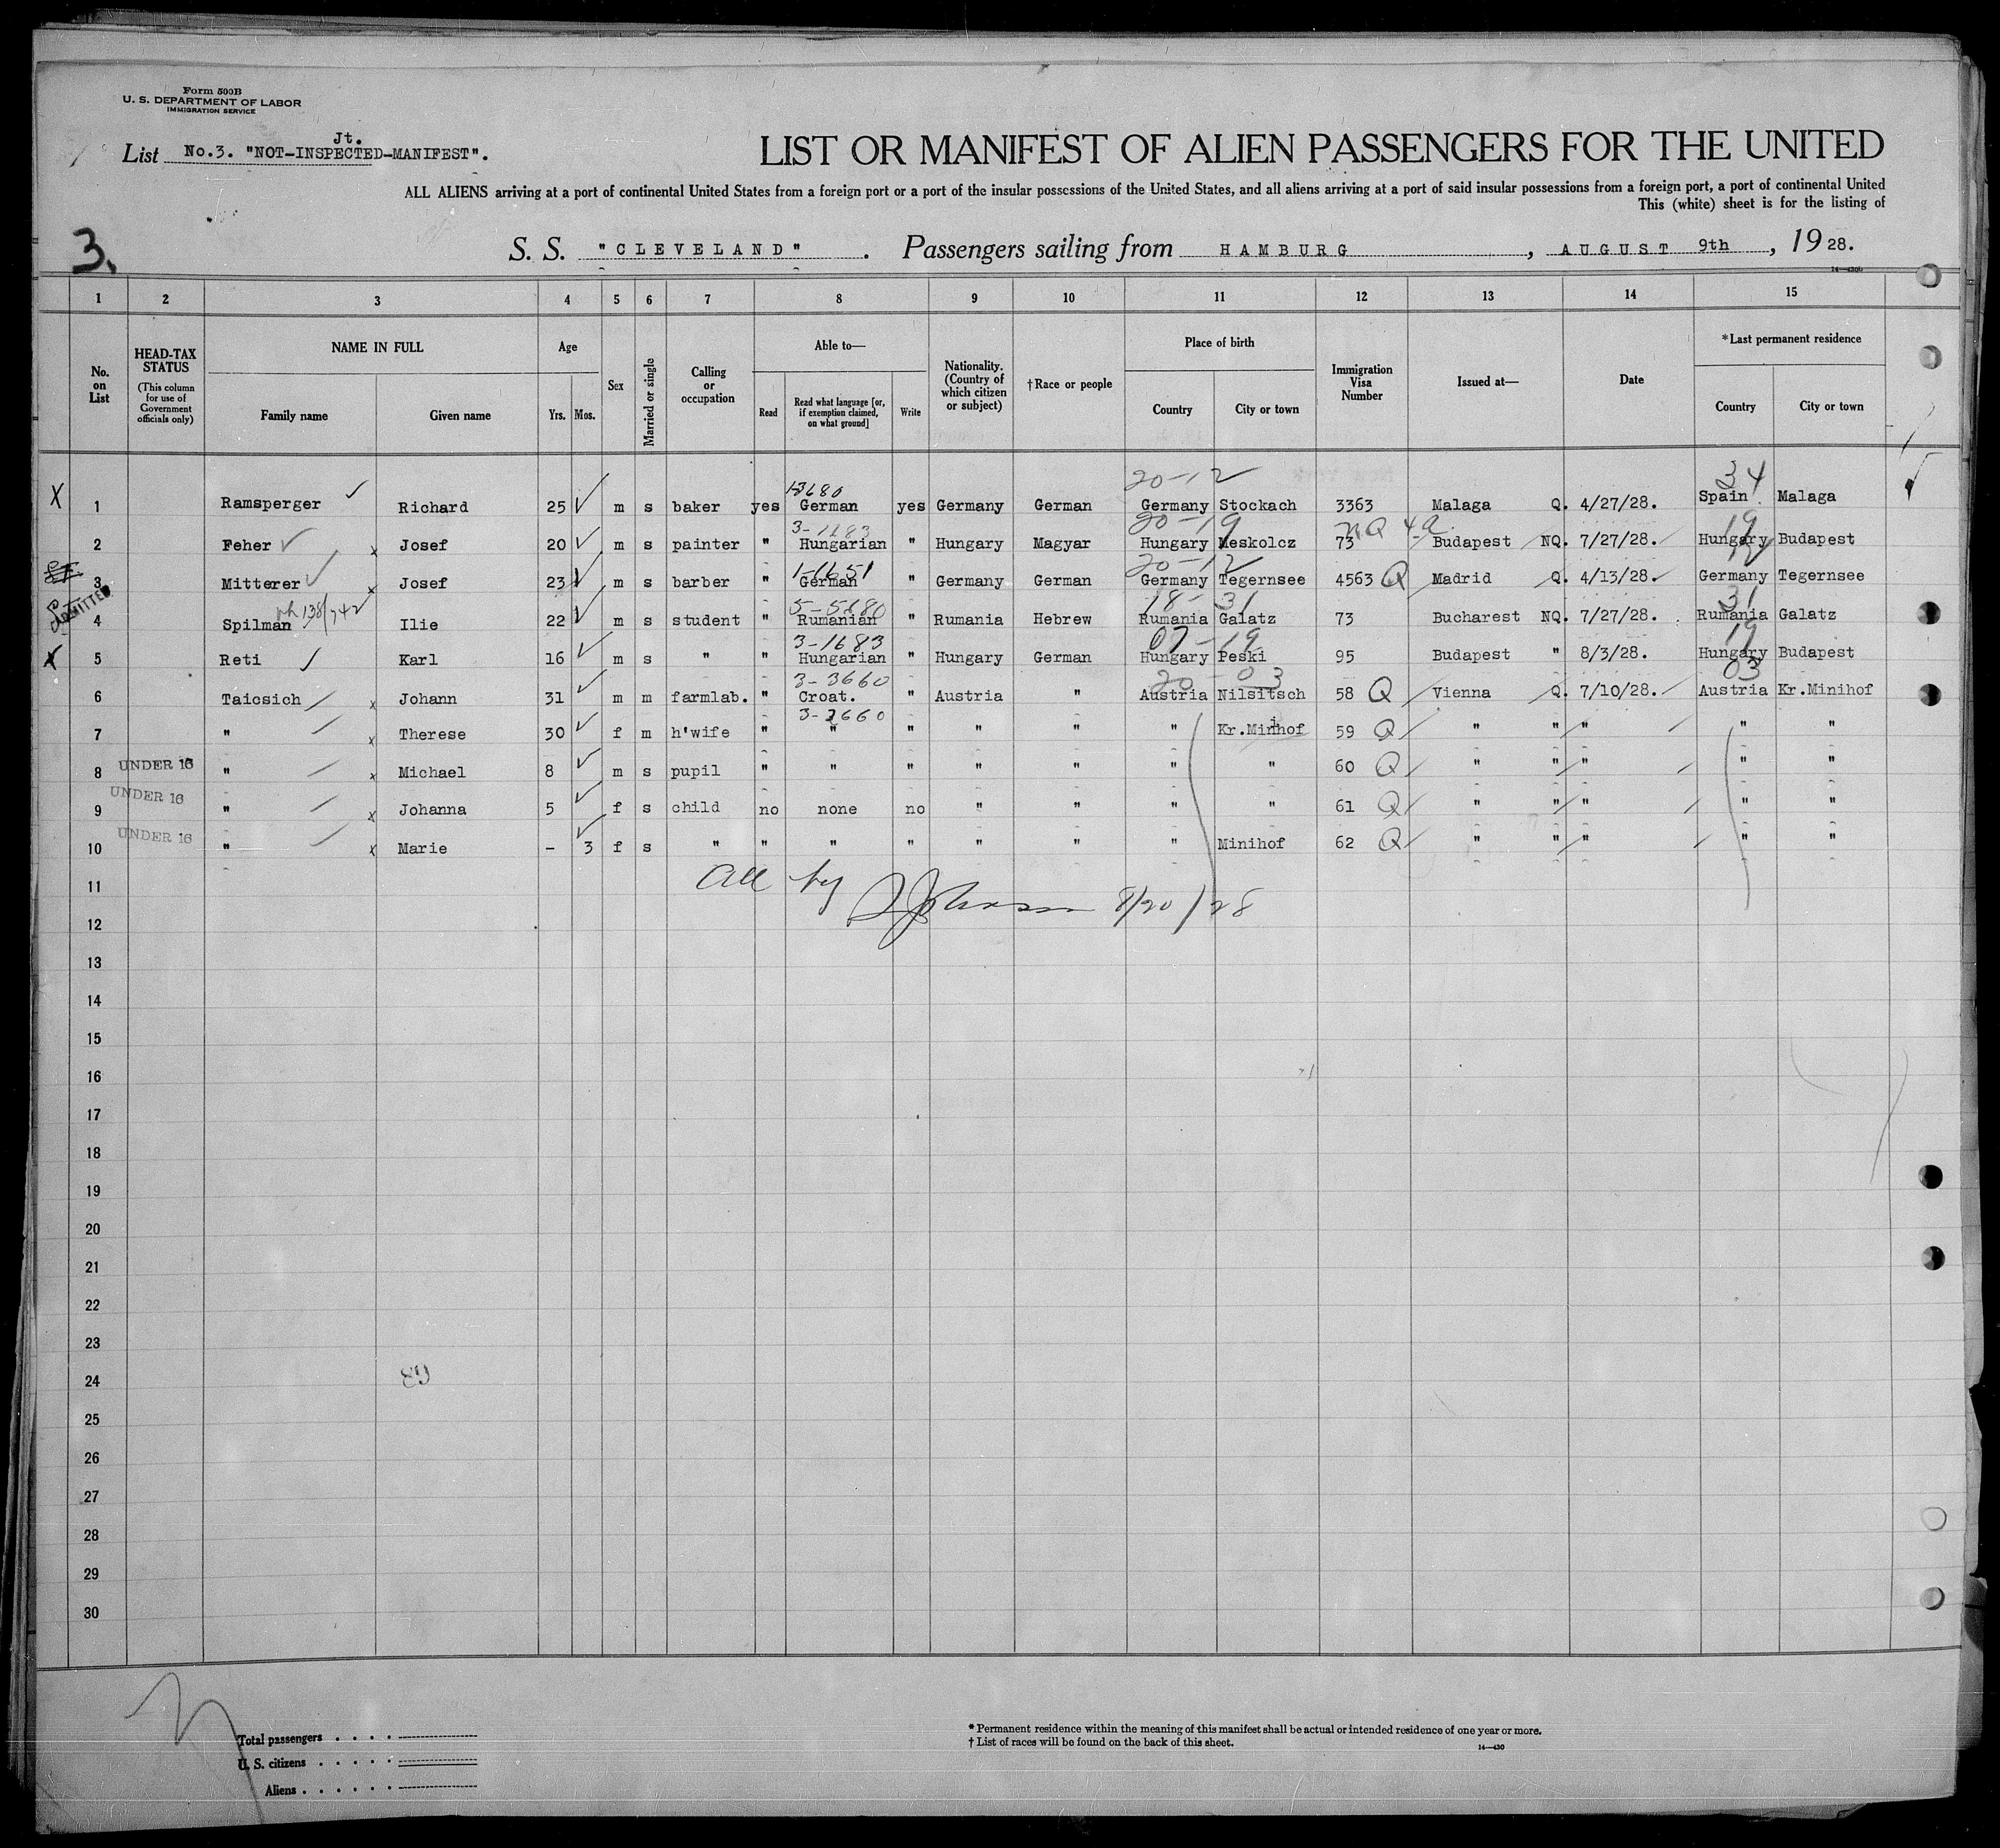 Form 500B
U. S. DEPARTMENT OF LABOR
IMMIGRATION SERVICE
Jt.
List No.3. "NOT-INSPECTED-MANIFEST".
LIST OR MANIFEST OF ALIEN PASSENGERS FOR THE UNITED
ALL ALIENS arriving at a port of continental United States from a foreign port or a port of the insular possessions of the United States, and all aliens arriving at a port of said insular possessions from a foreign port, a port of continental United
This (white) sheet is for the listing of
3.
S. S. "CLEVELAND". Passengers sailing from HAMBURG, AUGUST 9th, 1928.
1 2 3 4 5 6 7 8 9 10 11 12 13 14 15
No. on List
HEAD-TAX STATUS
(This column for use of Government officials only)
NAME IN FULL
Family name Given name
Age
Yrs. Mos.
Sex
Married or single
Calling or occupation
Able to—
Read
Read what language [or, if exemption claimed, on what ground]
Write
Nationality. (Country of which citizen or subject)
†Race or people
Place of birth
Country City or town
Immigration Visa Number
Issued at—
Date
*Last permanent residence
Country City or town
20-12 34
X 1 Ramsperger Richard 25 m s baker yes German yes Germany German Germany Stockach 3363 Malaga Q. 4/27/28. Spain Malaga
20-19 NQ 19
2 Feher x Josef 20 m s painter " Hungarian " Hungary Magyar Hungary Meskolcz 73 Budapest NQ. 7/27/28. Hungary Budapest
1-1651 20-12 12
3 Mitterer x Josef 23 m s barber " German " Germany German Germany Tegernsee 4563 Q Madrid Q. 4/13/28. Germany Tegernsee
ADMITTED 18-31 31
4 Spilman Ilie 22 m s student " Rumanian " Rumania Hebrew Rumania Galatz 73 Bucharest NQ. 7/27/28. Rumania Galatz
3-1683 07-19 19
X 5 Reti Karl 16 m s " " Hungarian " Hungary German Hungary Peski 95 Budapest " 8/3/28. Hungary Budapest
3-3660 20-03 03
6 Taicsich x Johann 31 m m farmlab. " Croat. " Austria " Austria Nilsitsch 58 Q Vienna Q. 7/10/28. Austria Kr.Minihof
7 " x Therese 30 f m h'wife " " " " " " Kr.Minihof 59 Q " " " " "
UNDER 16
8 " x Michael 8 m s pupil " " " " " " " 60 Q " " " " "
UNDER 16
9 " x Johanna 5 f s child no none no " " " " 61 Q " " " " "
UNDER 16
10 " x Marie - 3 f s " " " " " " " Minihof 62 Q " " " " "
11
All by Johnson 8/20/28
12
13
14
15
16
17
18
19
20
21
22
23
24
25
26
27
28
29
30
Total passengers
U. S. citizens
Aliens
* Permanent residence within the meaning of this manifest shall be actual or intended residence of one year or more.
† List of races will be found on the back of this sheet.
14—430